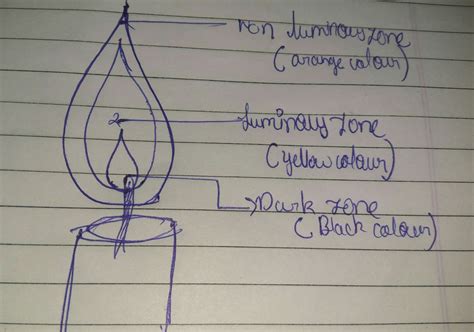 non luminous zone
(orange colour)
2
Luminous zone
(yellow colour)
Dark zone
(Black colour)